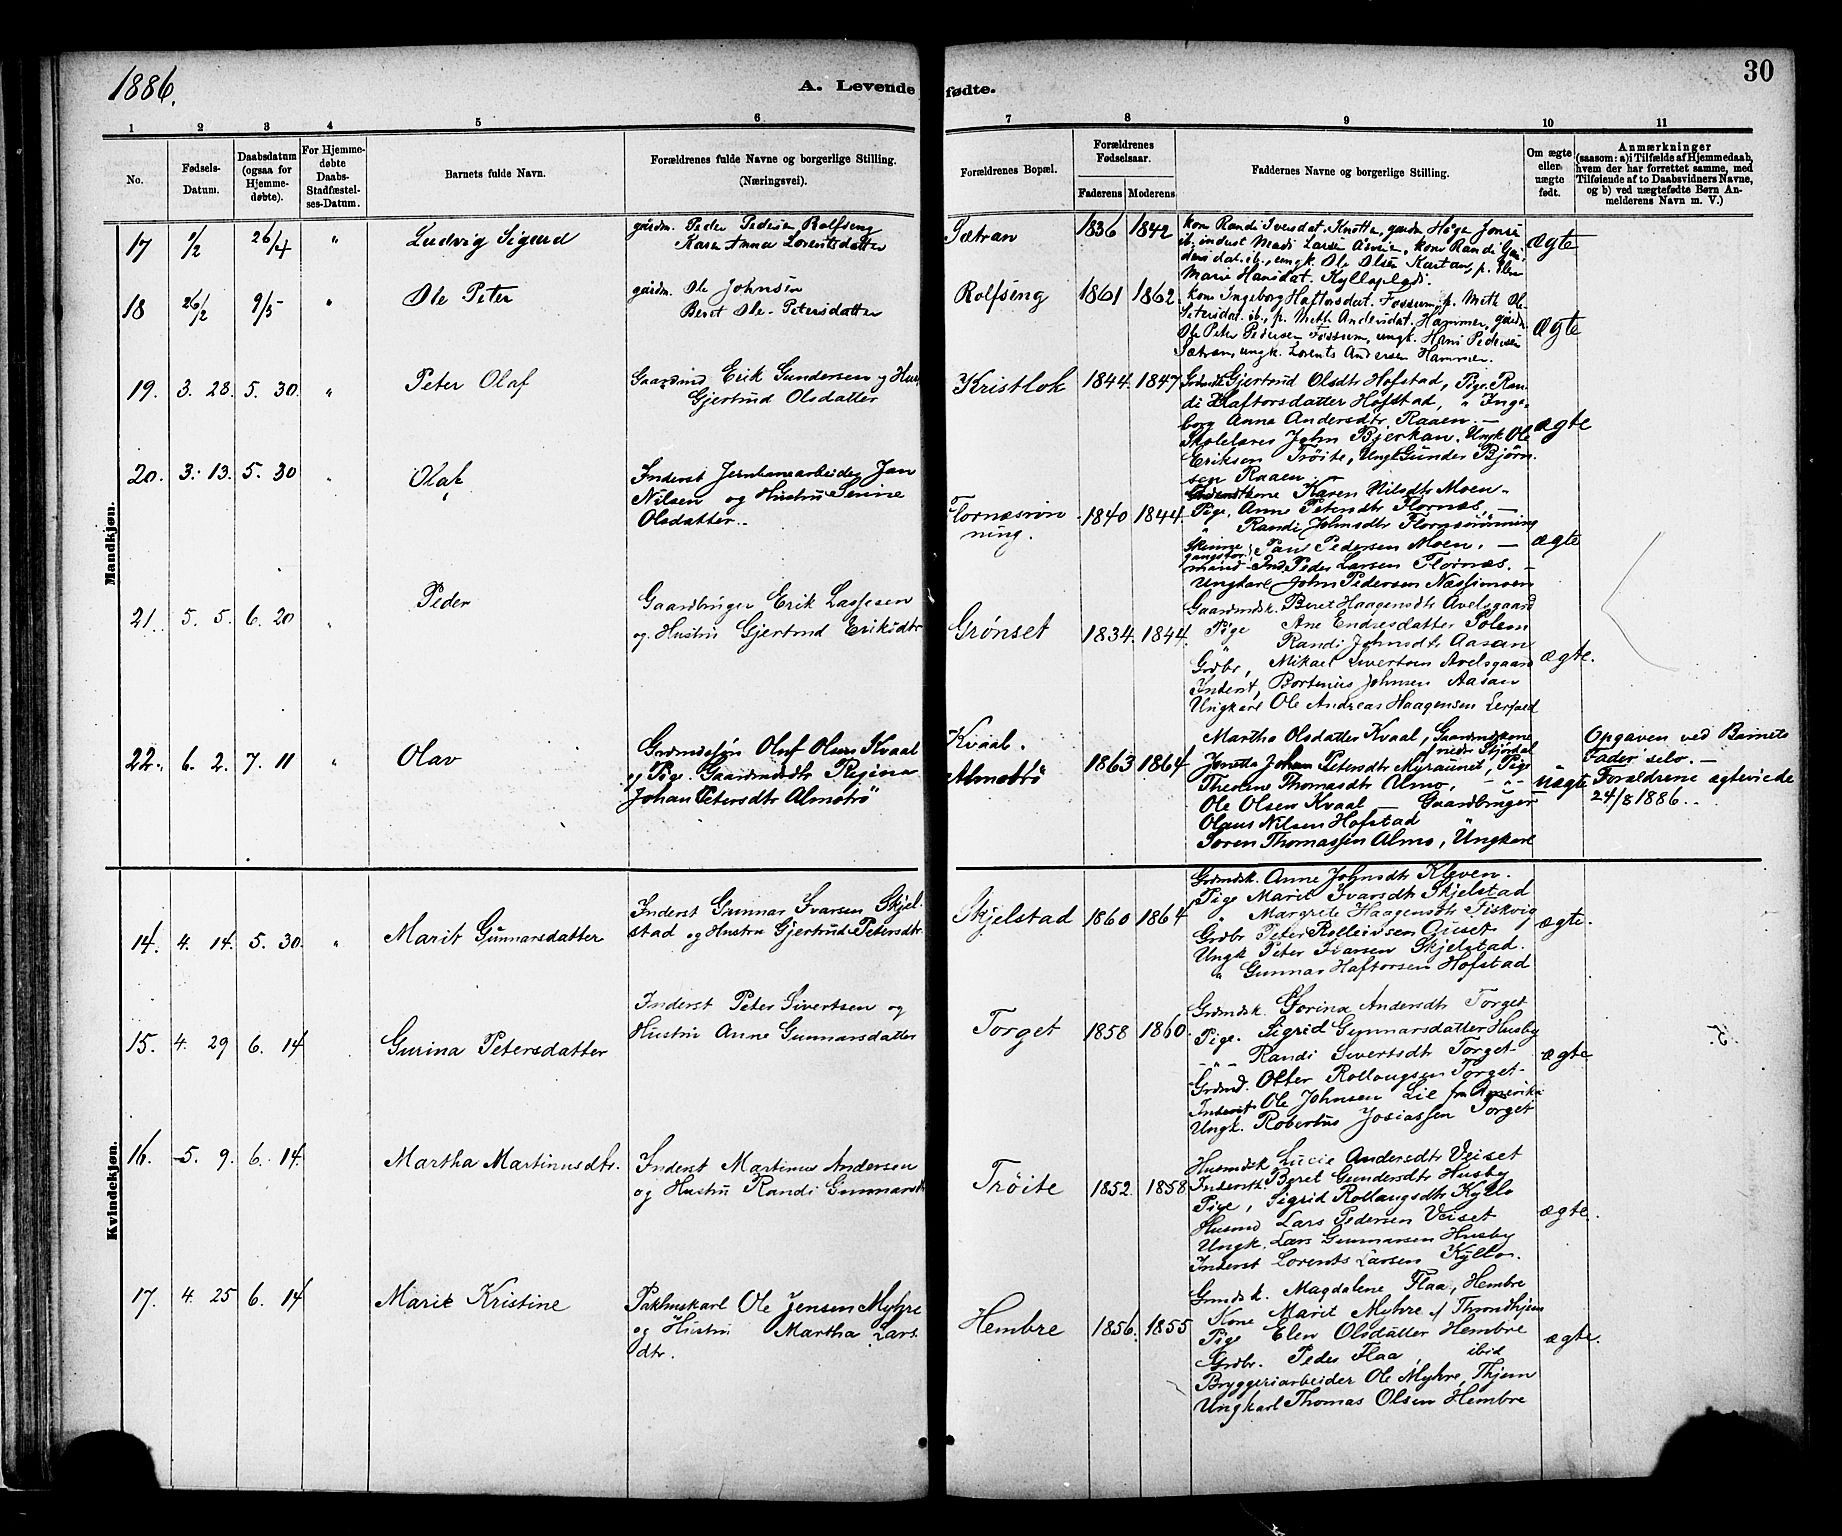 1886.
A. Levende fødte.
30
1 2 3 4 5 6 7 8 9 10 11
No.
Fødsels-
Datum.
Daabsdatum
(ogsaa for
Hjemme-
døbte).
For Hjemme-
døbte
Daabs-
Stadfæstel-
ses-Datum.
Barnets fulde Navn.
Forældrenes fulde Navne og borgerlige Stilling.
(Næringsvei).
Forældrenes Bopæl.
Forældrenes
Fødselsaar.
Faderens Moderens
Faddernes Navne og borgerlige Stilling.
Om ægte
eller
uægte
født.
Anmærkninger
(saasom: a) i Tilfælde af Hjemmedaab,
hvem der har forrettet samme, med
Tilføiende af to Daabsvidners Navne,
og b) ved uægtefødte Børn An-
melderens Navn m. V.)
Mandkjøn.
17 1/2 26/4 " Ludvig Sigurd
gårdm. Peder Pedersen Rolfseng
Karen Anna Lorentsdatter
Sætran 1836 1842
kone Randi Iversdat. Knotten, gårdm. Håge Jonsen
ib, inderst Mads Larsen kone Randi
ib., ungk. Ole Olsen Kartan, p. Elen
Marie Hansdat. Kylloplads.
ægte
18 26/2 9/5 " Ole Peter
gårdm. Ole Johnsen
Beret Ole-Petersdatter
Rolfseng 1861 1862
kone Ingeborg Haftorsdat. Fossum, p. Meth Ole
Petersdat. ib., p. Meth Andersdat. Hammer, gårdm.
Ole Peter Pedersen Fossum, ungk. Hans Pedersen
Sætran, ungk. Lorents Andersen Hammer.
ægte
19. 3. 28. 5. 30 " Peter Olaf
Gaardmd Erik Gundersen og Hust.
Gjertrud Olsdatter
Kristlok 1844. 1847.
Grdmdsk. Gjertrud Olsdtr Hofstad, Pige Ran-
di Haftorsdatter Hofstad, " Inge-
borg Anna Andersdtr Raaen —
Skolelærer John Bjerkan. Ungk Ole
Eriksen Trøite, Ungk Gunder Bjørn-
sen Raaen.
ægte
20. 3. 13. 5. 30 " Olaf
Inderst Jernbanearbeider Jan
Nilsen og Hustru Serine
Olsdatter.
Flornæsrøn-
ning. 1840 1844.
Karen Nilsdtr Moen
Pige. Anne Petersdtr Flornæs. —
" Randi Johnsdtr Flornæsrønning
Paul Pedersen Moen. —
Ind. Peder Larsen Flornæs. —
Ungkarl John Pedersen Næssimoen
ægte
21. 5. 5. 6. 20 " Peder
Gaardbruger Erik Lassesen
og Hustru Gjertrud Eriksdtr
Grønset 1834. 1844.
Gaardmdsk. Beret Haagensdtr Avelsgaard
Pige Ane Endresdatter Solem
" Randi Johnsdtr Aasan
Grdbr, Mikael Sivertsen Avelsgaard
Inderst, Bortinius Johnsen Aasan
Ungkarl Ole Andreas Haagensen Lerfald
ægte.
22. 6. 2. 7. 11 " Olav
Grdmdssøn Oluf Olsen Kvaal
og Pige Gaardmdsdtr Regina
Johan Petersdtr Almotrø
Kvaal.
Almotrø 1863 1864
Martha Olsdatter Kvaal, Gaardmdskone
nedre Stjørdal
Jonetta Johan Petersdtr Myraunet, Pige
Theoline Thomasdtr Almo, "
Ole Olsen Kvaal — Gaardbruger
Olaus Nilsen Hofstad
Søren Thomassen Almo, Ungkarl
uægte
Opgaven ved Barnets
Fader selv. —
Forældrene ægteviede
24/8 1886.
Kvindekjøn.
14. 4. 14. 5. 30. " Marit Gunnarsdatter
Inderst Gunnar Ivarsen Skjel-
stad og Hustru Gjertrud Petersdtr.
Skjelstad 1860 1864
Grdmdsk. Anne Johnsdtr Kleven.
Pige Marit Ivarsdtr Skjelstad
" Margrete Haagensdtr Fiskvig
Grdbr Peter Rolleivsen Auset
Ungk Peter Ivarsen Skjelstad.
" Gunnar Haftorsen Hofstad
ægte.
15. 4. 29 6. 14 Gurina Petersdatter
Inderst Peter Sivertsen og
Hustru Anne Gunnarsdatter
Torget 1858 1860.
Grdmdsk. Gorina Andersdtr Torget
Pige. Sigrid Gunnarsdatter Husby
- " - Randi Sivertsdtr Torget
Grdmd. Otter Rollaugsen Torget
Inderst Ole Johnsen Lie fra Amerika
Ungk. Robertus Josiassen Torget
ægte.
16. 5. 9. 6. 14. Martha Martinusdtr.
Inderst Martinus Andersen
og Hustru Randi Gunnarsdt
Trøite 1852. 1858
Husmdsk Lucie Andersdtr Veiset
Inderstk. Beret Gundersdtr Husby
Pige, Sigrid Rollaugsdtr Kyllo
Husmd Lars Pedersen Veiset
Ungk. Lars Gunnarsen Husby
Inderst Lorents Larsen Kyllo.
ægte.
17. 4. 25 6. 14 Marie Kristine
Pakhuskarl Ole Jensen Myhre
og Hustru Martha Lars
dtr.
Hembre 1856. 1855
Grmdsk. Magdalene Flaa, Hembre
Kone Marit Myhre af Throndhjem
Pige Elen Olsdatter Hembre
Grdbr. Peder Flaa, ibid
Bryggeriarbeider Ole Myhre, Thjem
Ungkarl Thomas Olsen Hembre
ægte.